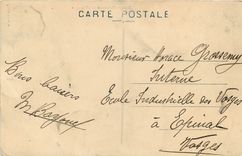 CARTE POSTALE
Monsieur
Interne
Ecole Industrielle des Vosges
à Epinal
Vosges
Bons baisers